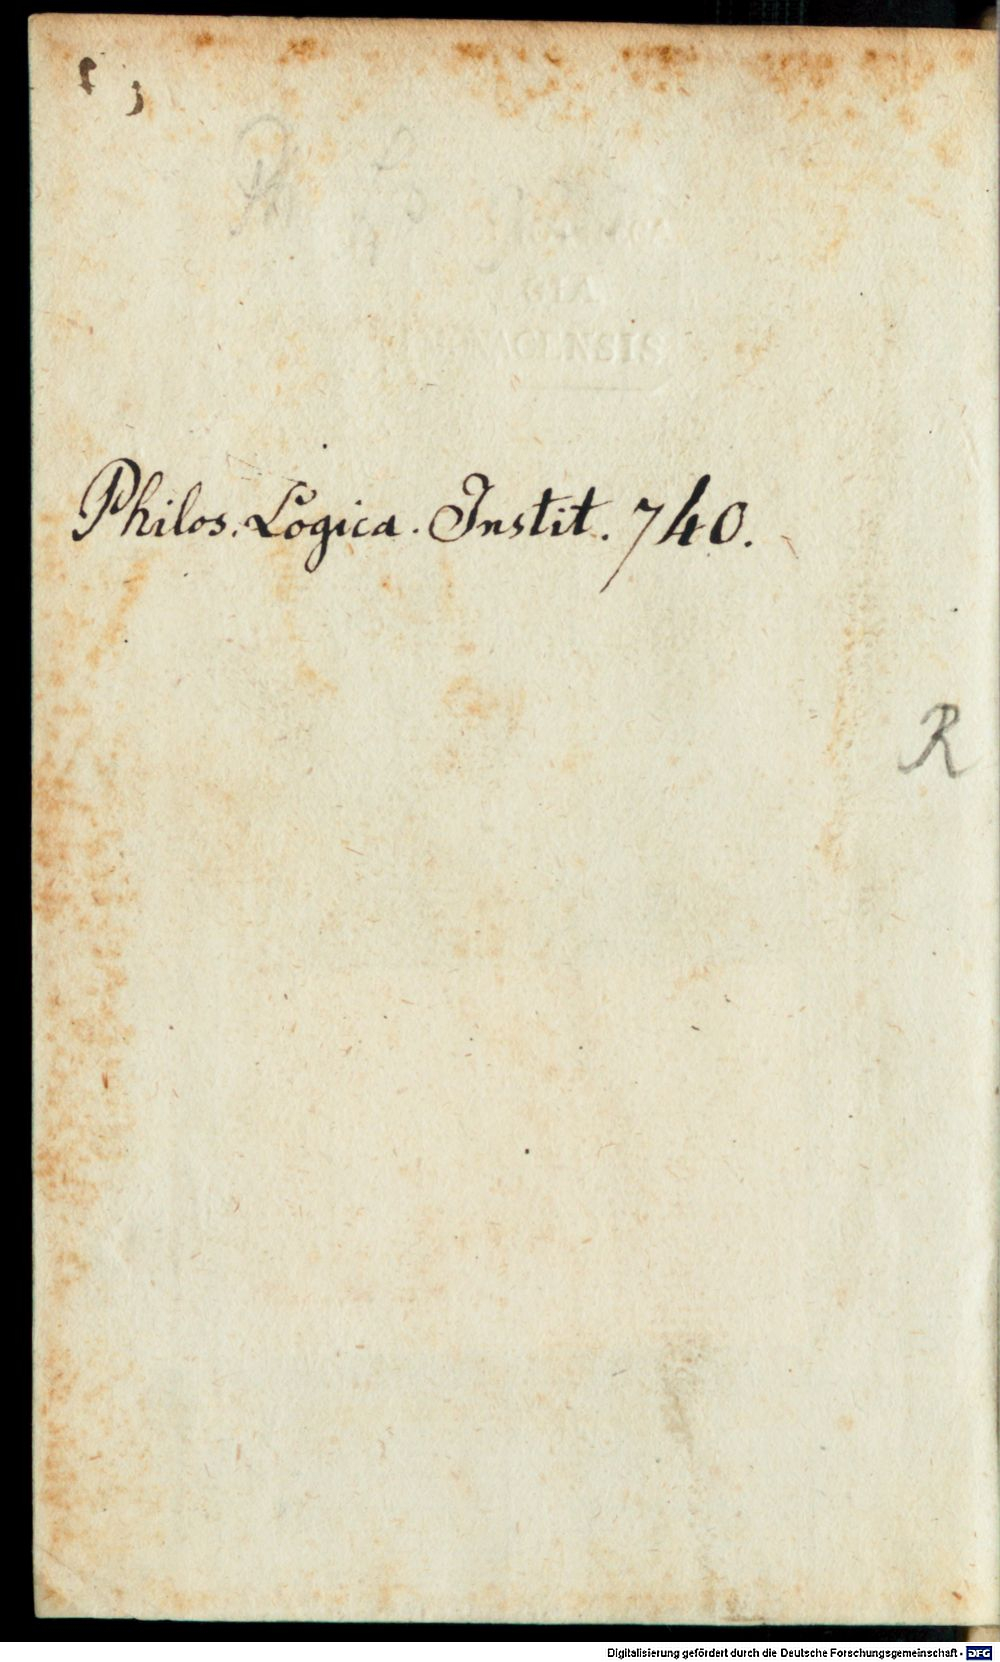 Philos. Logica. Instit. 740.
R
Digitalisierung gefördert durch die Deutsche Forschungsgemeinschaft - DFG